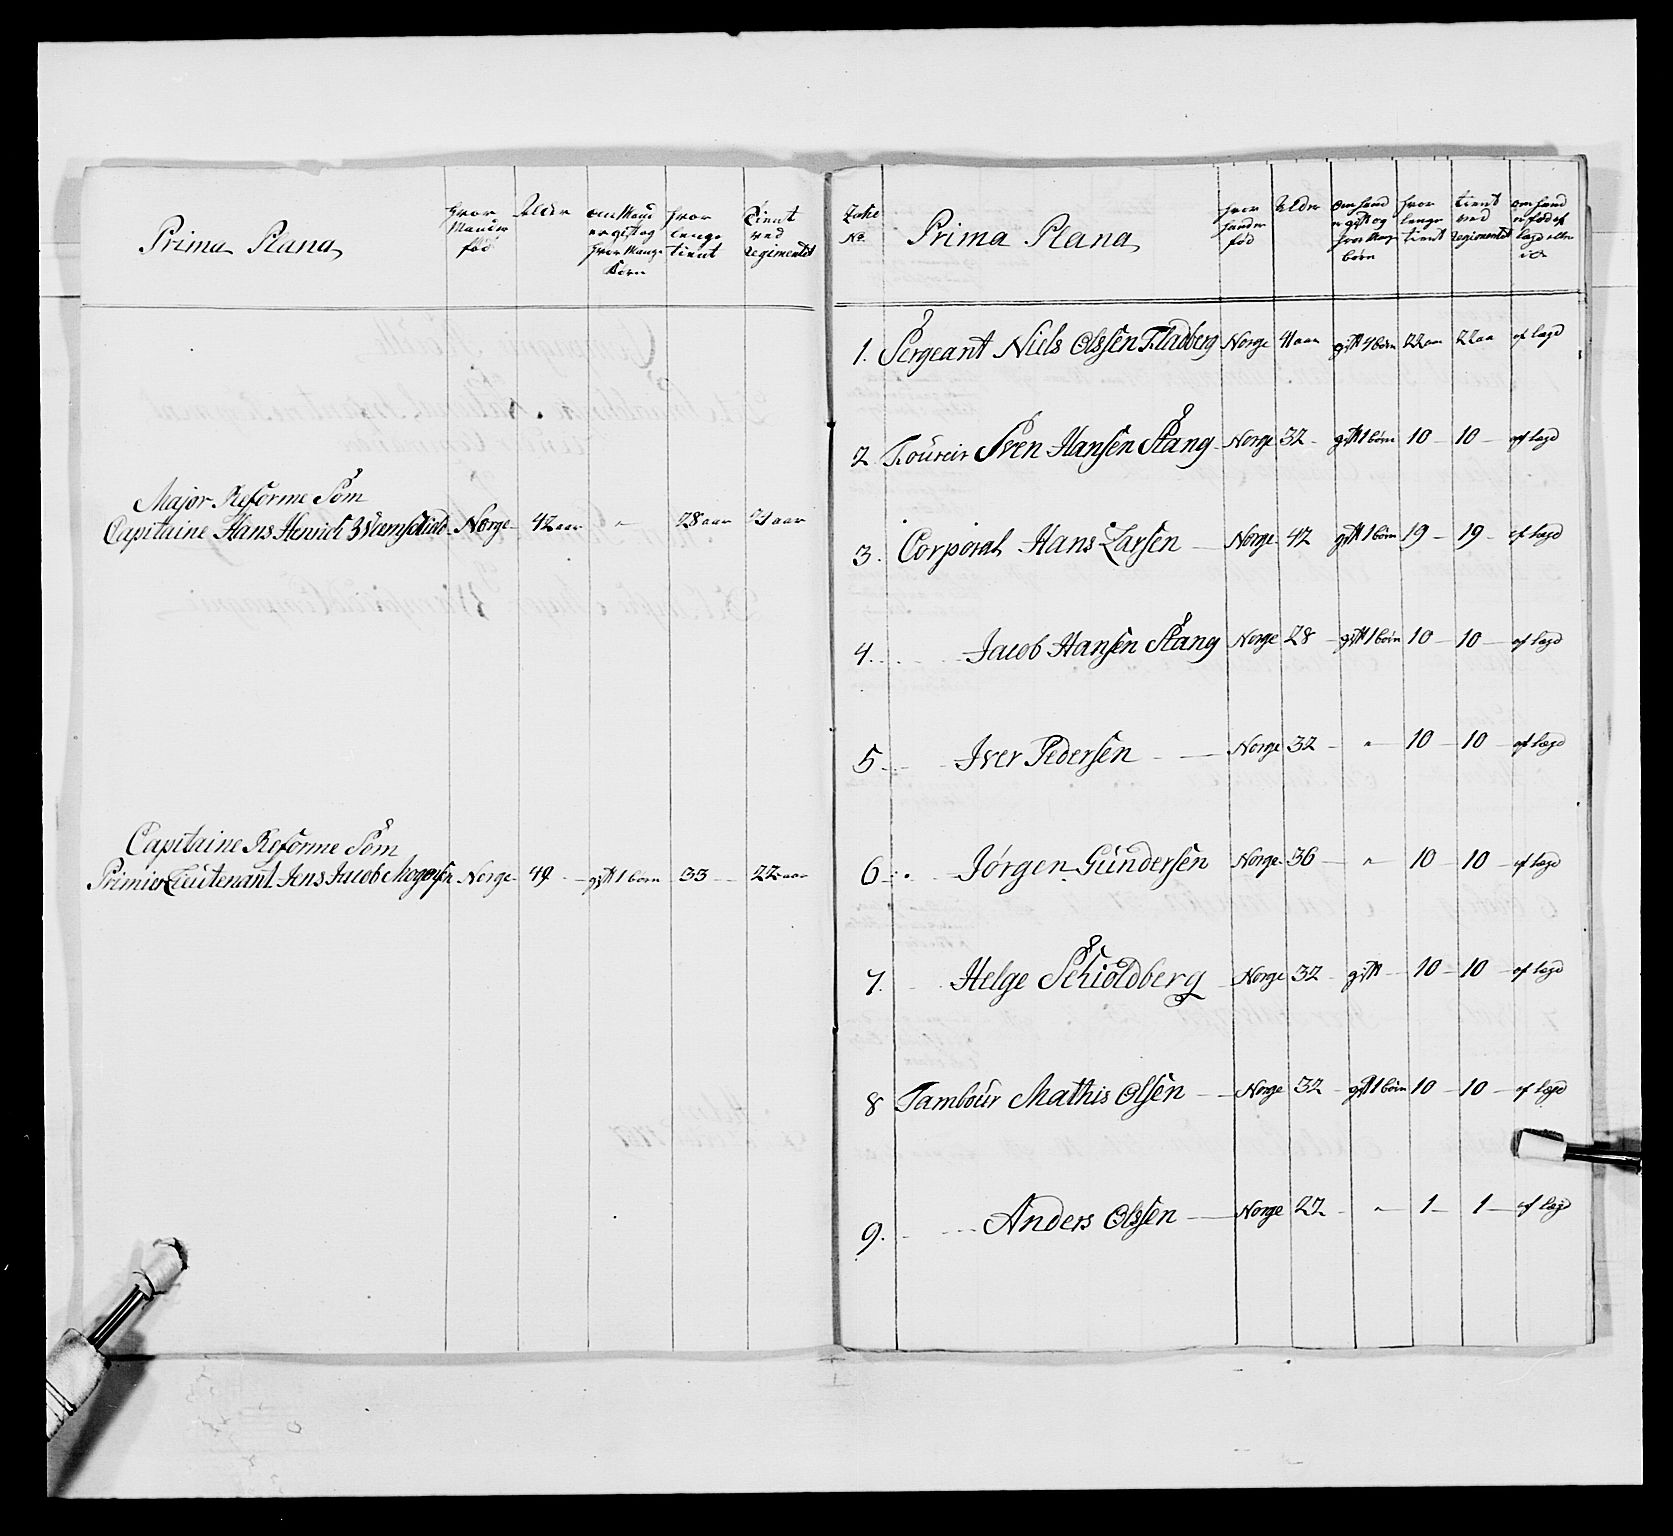 Prima Plana
hvor
Mand er
fød
Alder
om Mand
er gift og
hvor Mange
Børn
hvor
lenge
tient
Tient
ved
Regimentet
Major Reforme Som
Capitaine Hans Henrich Norge 42 aar " 28 aar 21 aar
Capitaine Reforme Som
Primier Lieutenant Jens Jacob Mogensen Norge 49 gift 1 børn 33 22 aar
No
Prima Plana
hvor
hand er
fød
Alder
om hand
er gift og
hvor Mange
børn
hvor
lenge
tient
tient
ved
Regimentet
om hand
er fød af
lægd eller
ick
1. Sergeant Niels Olssen Fladberg Norge 41 aar gift 4 børn 22 aar 22 aa af lægd
2 Foureir Sven Hansen Stang Norge 32 gift 1 børn 10 10 af lægd
3. Corporal Hans Larsen Norge 42 gift 1 børn 19 19 af lægd
4. Jacob Hansen Stang Norge 28 gift 1 børn 10 10 af lægd
5 Iver Pedersen Norge 32 " 10 10 af lægd
6 Jørgen Gundersen Norge 36 " 10 10 af lægd
7. Helge Schioldberg Norge 32 gift 10 10 af lægd
8 Tambour Mathis Olsen Norge 32 gift 1 børn 10 10 af lægd
9. Anders Olssen Norge 27 " 1 1 af lægd